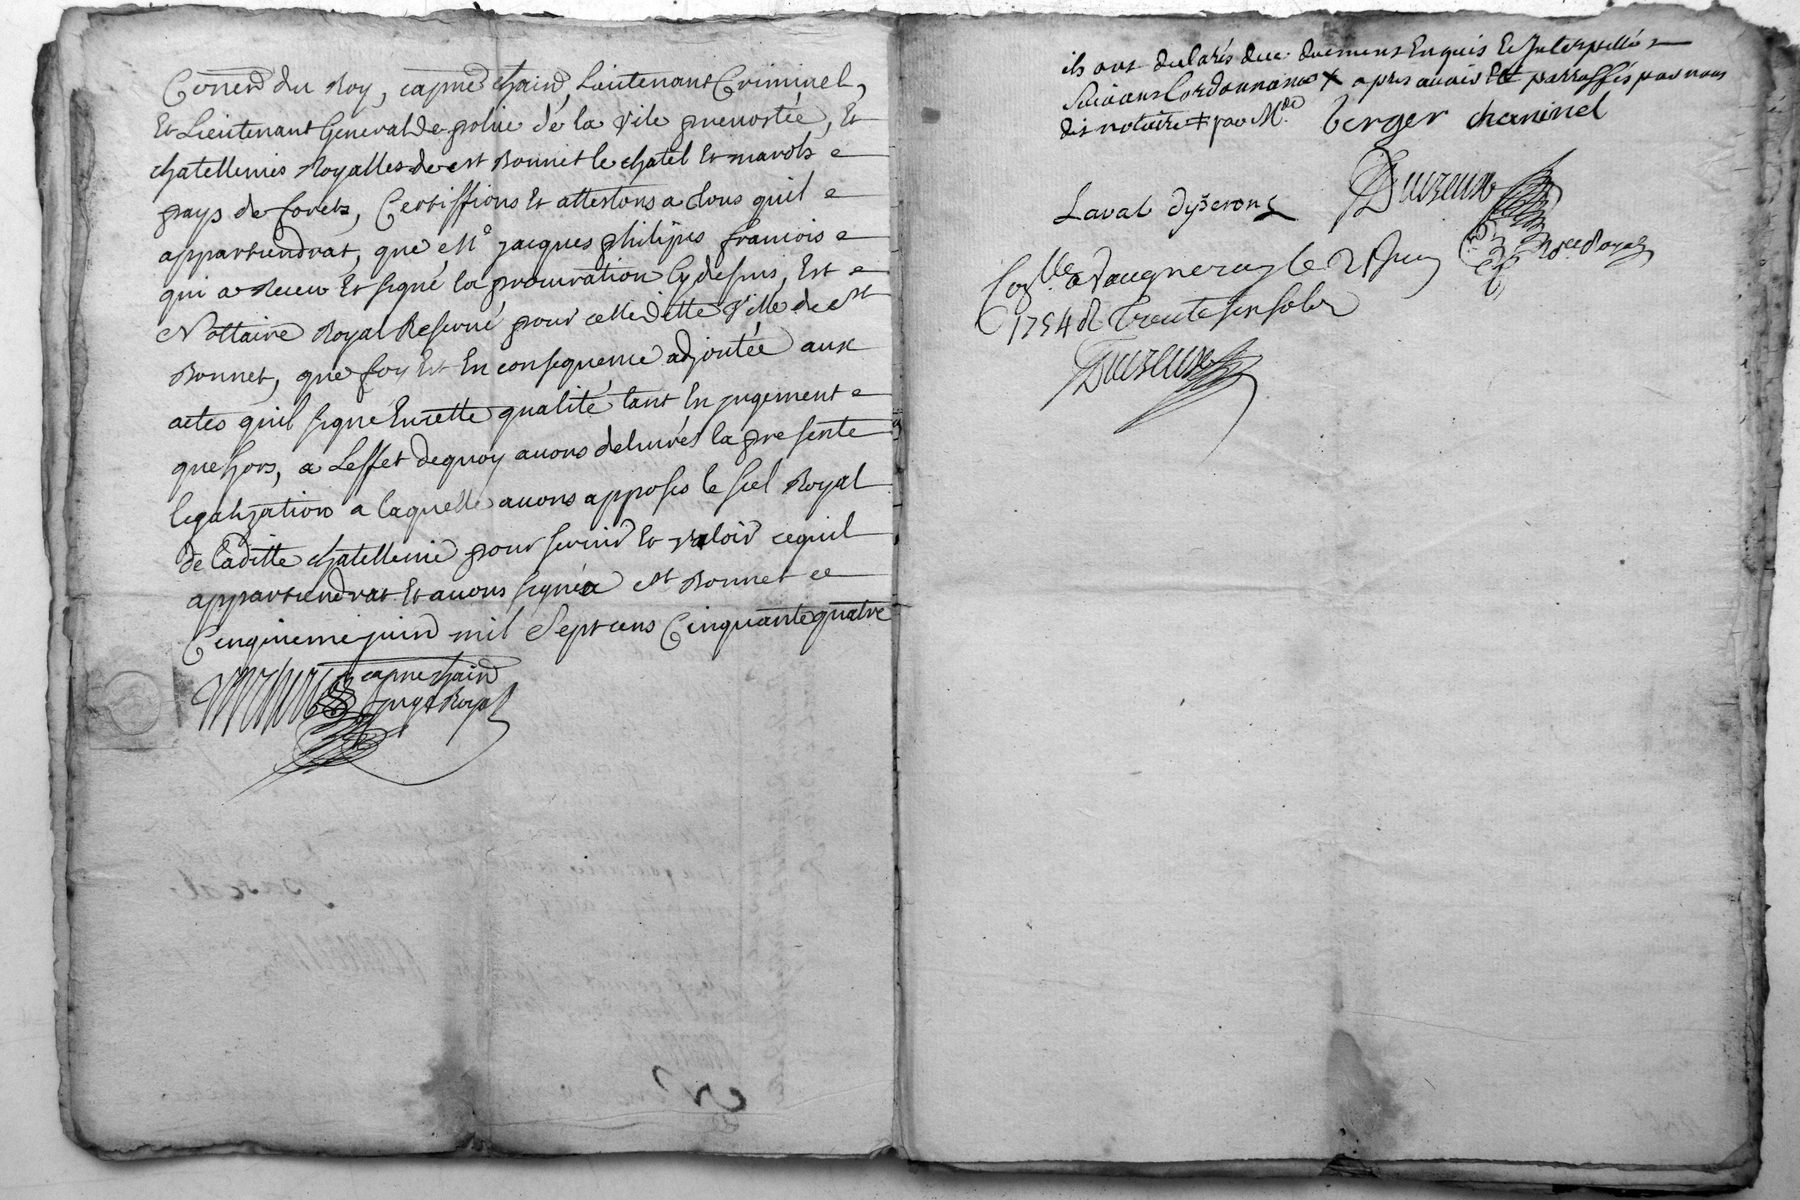 Coner du Roy, capne chain, Lieutenant Criminel,
Et Lieutenant General de police de la Vile prenostée, Et
chatellenies Royalles de st Bonnet le chatel Et marols
pays de forets, Certiffions Et attestons a tous quil
appartiendrat, que Me jacques philipes francois
qui a Receu Et signé la procuration Cy dessus, Est
Nottaire Royal Reservé pour cette ditte Ville de st
Bonnet, que foy Est En consequence adjoutée aux
actes quil signe En cette qualité tant En jugement
que hors, a Leffet dequoy avons delivrés la presente
legalization a laquelle avons apposés le scel Royal
de laditte chatellenie pour servir Et valoir cequil
appartiendrat Et avons signé a st Bonnet ce
Cinquieme juin mil Sept cens Cinquante quatre
capne chain
juge Royal
ils ont declarés de ce duement Enquis Et Interpellés
suivant Lordonnance x apres avoir Eté parraffés par nous
dit notaire + par Me
berger cheninel
Laval dyzeron
Duzeux
Nre Royal
Coll e a Vaugneray le 21 juin
1754 R Trente six sols
Duzeux